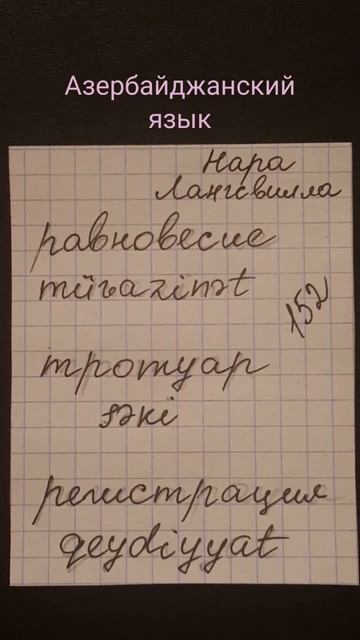 Азербайджанский
язык
Нара
Лангсвилла
равновесие
müvazinət
152
тротуар
səki
регистрация
qeydiyyat